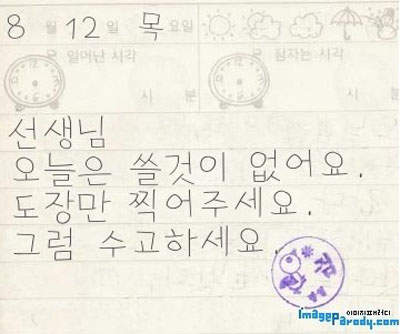 8월 12일 목요일
일어난 시각 잠자는 시각
시 분 시 분
선생님
오늘은 쓸것이 없어요.
도장만 찍어주세요.
그럼 수고하세요.
이미지패러디
ImageParody.com